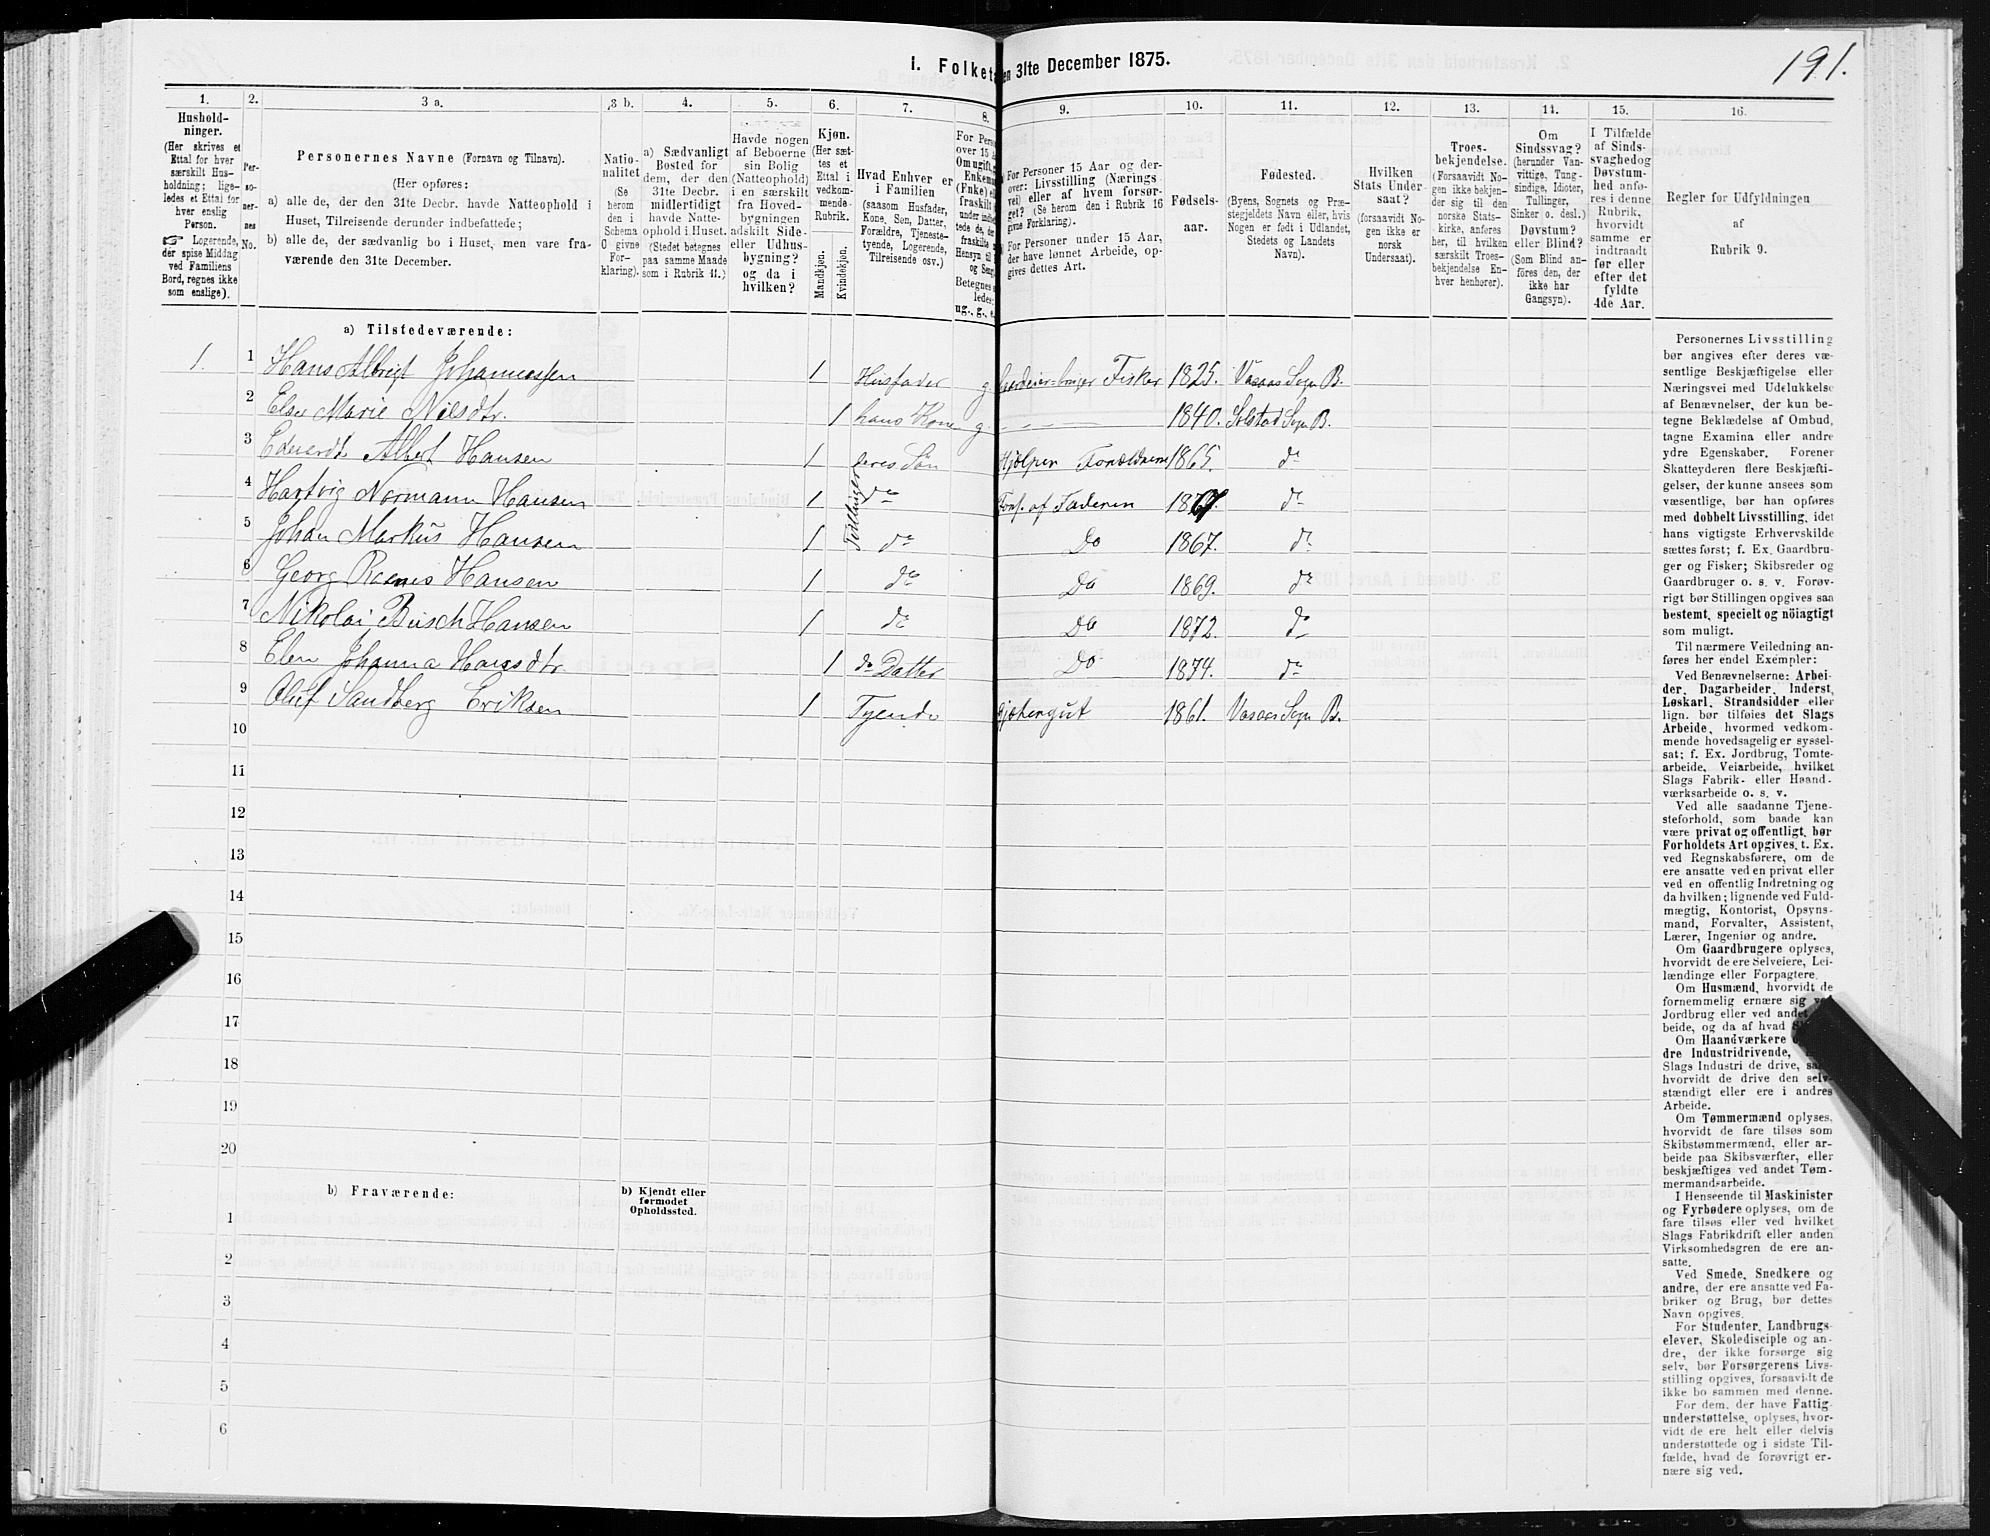 191.
1. Folket en 31te December 1875.
1. 2. 3 a. 3 b. 4. 5. 6. 7. 8. 9. 10. 11. 12. 13. 14. 15. 16.
Hushold-
ninger.
(Her skrives et
Ettal for hver
særskilt Hus-
holdning; lige-
ledes et Ettal for
hver enslig
Person.
☞ Logerende,
der spise Middag
ved Familiens
Bord, regnes ikke
som enslige).
Per-
so-
ner-
nes
No.
Personernes Navne (Fornavn og Tilnavn).
(Her opføres:
a) alle de, der den 31te Decbr. havde Natteophold i
Huset, Tilreisende derunder indbefattede;
b) alle de, der sædvanlig bo i Huset, men vare fra-
værende den 31te December.
Natio-
nalitet
(Se
herom
den i
Schema
O givne
For-
klaring).
a) Sædvanligt
Bosted for
dem, der den
31te Decbr.
midlertidigt
havde Natte-
ophold i Huset.
(Stedet betegnes
paa samme Maade
som i Rubrik 11.)
Havde nogen
af Beboerne
sin Bolig
(Natteophold)
i en særskilt
fra Hoved-
bygningen
adskilt Side-
eller Udhus-
bygning?
og da i
hvilken?
Kjøn.
(Her sæt-
tes et
Ettal i
vedkom-
mende
Rubrik.
Mandkjøn.
Kvindekjøn.
Hvad Enhver er
i Familien
(saasom Husfader,
Kone, Søn, Datter,
Forældre, Tjeneste-
tyende, Logerende,
Tilreisende osv.)
For Pers
over 15 a
Om ugift,
Enkem
(Fnke) e
fraskilt
under ind
tede de, de
fraskilte
Hensyn til
og Seng
Betegnes
ledes:
ug., g., e.
For Personer 15 Aar og der-
over: Livsstilling (Nærings
vei) eller af hvem forsør-
get? (Se herom den i Rubrik 16
givne Forklaring).
For Personer under 15 Aar,
der have lønnet Arbeide, op-
gives dettes Art.
Fødsels-
aar.
Fødested.
(Byens, Sognets og Præ-
stegjeldets Navn eller, hvis
Nogen er født i Udlandet,
Stedets og Landets
Navn).
Hvilken
Stats Under-
saat?
(forsaavidt No-
gen ikke er
norsk
Undersaat).
Troes-
bekjendelse.
(Forsaavidt No-
gen ikke bekjen-
der sig til den
norske Stats-
kirke, anføres
her, til hvilken
særskilt Troes-
bekjendelse En-
hver henhører).
Om
Sindssvag?
(herunder Van-
vittige, Tung-
sindige, Idioter,
Tullinger,
Sinker o. desl.)
Døvstum?
eller Blind?
(Som Blind an-
føres den, der
ikke har
Gangsyn).
I Tilfælde
af Sinds-
svaghedog
Døvstum-
hed anfø-
res i denne
Rubrik,
hvorvidt
samme er
indtraadt
før eller
efter det
fyldte
4de Aar.
Regler for Udfyldningen
af
Rubrik 9.
a) Tilstedeværende:
1. 1 Hans Albrigt Johannessen 1 Husfader g Fisker 1825. Vasaas Sogn B.
2 Else Marie Nilsdtr. 1 hans Kone g. 1840. Solstad Sogn B.
3 Edvardt Albert Hansen 1 deres Søn Hjælper Forældrene 1865. do
4 Hartvig Normann Hansen 1 do Fors. af Faderen 1867. do
Tvillinger
5 Johan Markus Hansen 1 do Do 1867. do
6 Georg Hansen 1 do Do 1869. do
7 Nikolai Busch Hansen 1 do Do 1872. do
8 Elen Johanna Hansdtr. 1 do Datter Do 1874. do
9 Oluf Sandberg Eriksen 1 Tyende Gjætergut 1861. Vasaas Sogn B.
10
11
12
13
14
15
16
17
18
19
20
b) Fraværende:
b) Kjendt eller
formodet
Opholdssted.
1
2
3
4
5
6
Personernes Livsstilling
bør angives efter deres væ-
sentlige Beskjæftigelse eller
Næringsvei med Udelukkelse
af Benævnelser, der kun be-
tegne Beklædelse af Ombud,
tagne Examina eller andre
ydre Egenskaber. Forener
Skatteyderen flere Beskjæfti-
gelser, der kunne ansees som
væsentlige, bør han opføres
med dobbelt Livsstilling, idet
hans vigtigste Erhvervskilde
sættes først; f. Ex. Gaardbru-
ger og Fisker; Skibsreder og
Gaardbruger o. s. v. Forøv-
rigt bør Stillingen opgives saa
bestemt, specielt og nöiagtigt
som muligt.
Til nærmere Veiledning an-
føres her endel Exempler:
Ved Benævnelserne: Arbei-
der, Dagarbeider, Inderst,
Løskarl, Strandsidder eller
lign. bør tilføies det Slags
Arbeide, hvormed vedkom-
mende hovedsagelig er syssel-
sat; f. Ex. Jordbrug, Tomte-
arbeide, Veiarbeide, hvilket
Slags Fabrik- eller Haand-
værksarbeide o. s. v.
Ved alle saadanne Tjene-
steforhold, som baade kan
være privat og offentligt, bør
Forholdets Art opgives, t. Ex.
ved Regnskabsførere, om de
ere ansatte ved en privat eller
ved en offentlig Indretning og
da hvilken; lignende ved Fuld-
mægtig, Kontorist, Opsyns-
mand, Forvalter, Assistent,
Lærer, Ingeniør og andre.
Om Gaardbrugere oplyses,
hvorvidt de ere Selveiere, Lei-
lændinge eller Forpagtere.
Om Husmænd, hvorvidt de
fornemmelig ernære sig ved
Jordbrug eller ved andet
beide, og da af hvad
Om Haandværkere
dre Industridrivende,
Slags Industri de drive,
hvorvidt de drive den selv-
stændigt eller ere i andres
Arbeide.
Om Tømmermænd oplyses,
hvorvidt de fare tilsøs som
Skibstømmermænd, eller ar-
beide paa Skibsværfter, eller
beskjæftiges ved andet Tøm-
mermandsarbeide.
I Henseende til Maskinister
og Fyrbødere oplyses, om de
fare tilsøs eller ved hvilket
Slags Fabrikdrift eller anden
Virksomhedsgren de ere an-
satte.
Ved Smede, Snedkere og
andre, der ere ansatte ved Fa-
briker og Brug, bør dettes
Navn opgives.
For Studenter, Landbrugs-
elever, Skoledisciple og an-
dre, der ikke forsørge sig
selv, bør Forsørgerens Livs-
stilling opgives, forsaavidt de
ikke bo sammen med denne.
For dem, der have Fattig-
understøttelse, oplyses, hvor-
vidt de ere helt eller delvis
understøttede og i sidste Til-
fælde, hvad de forøvrigt er-
nære sig ved.